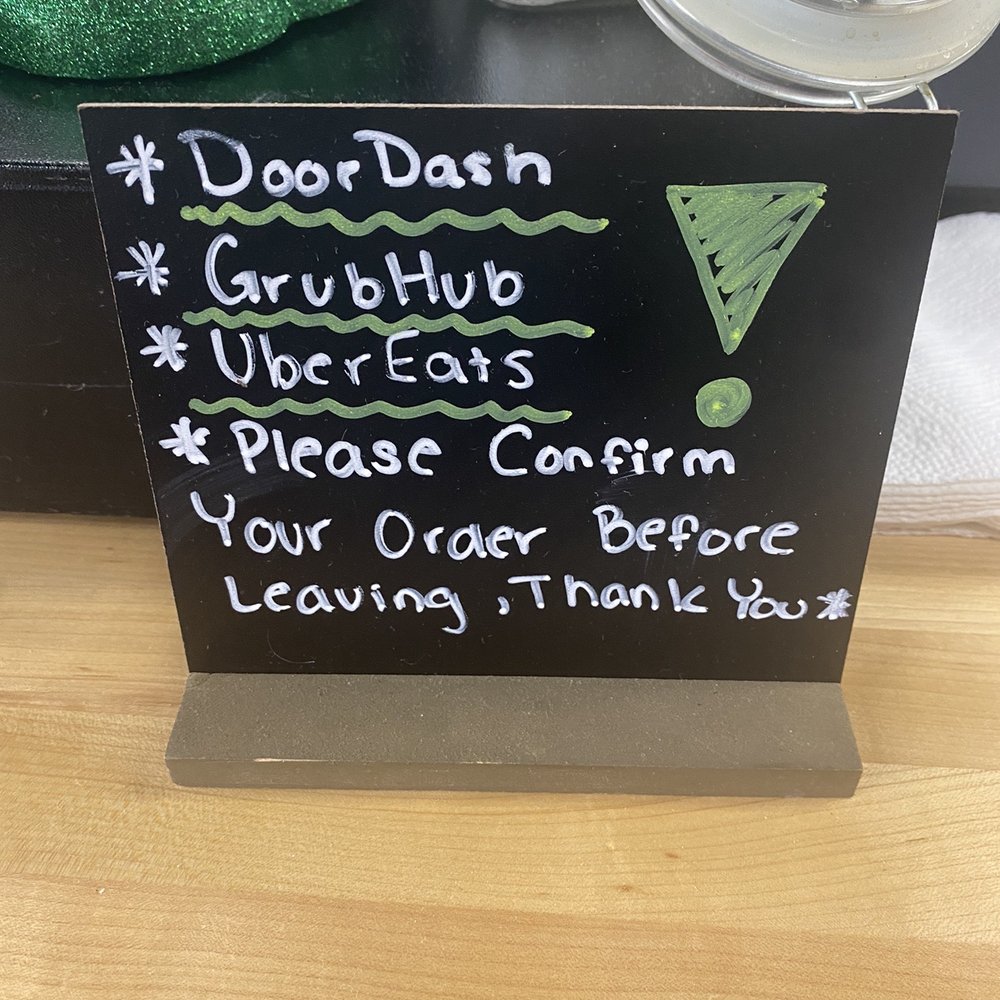 * DoorDash
* GrubHub
* UberEats
* Please Confirm
Your Order Before
Leaving , Thank You *
!